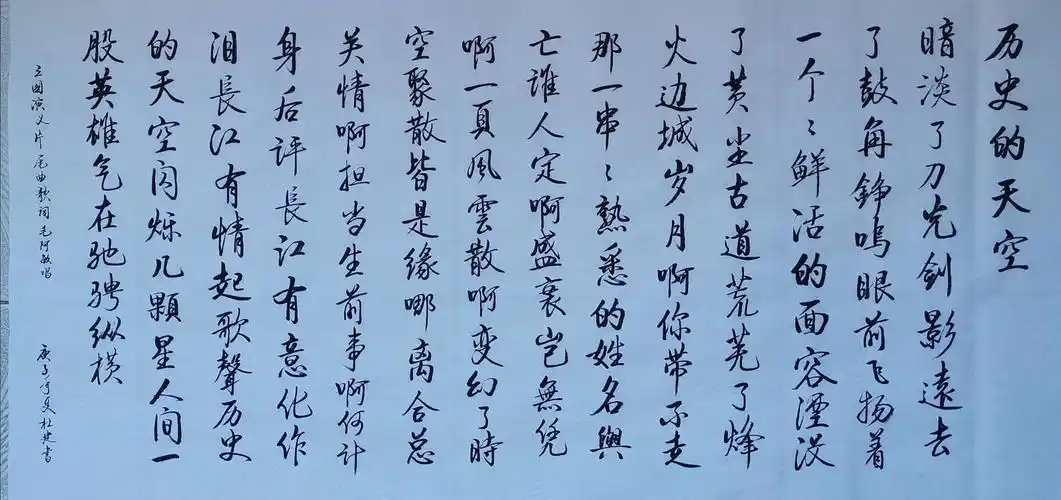 历史的天空
暗淡了刀光剑影遠去
了鼓角錚鳴眼前飞扬着
一个々鲜活的面容湮没
了黄尘古道荒芜了烽
火边城岁月啊你带不走
那一串々熟悉的姓名興
亡谁人定啊盛衰岂無凭
啊一頁風雲散啊变幻了時
空聚散皆是缘哪离合总
关情啊担当生前事啊何计
身后评長江有意化作
泪長江有情起歌聲历史
的天空闪烁几颗星人间一
股英雄气在驰骋纵横
三國演义片尾曲歌词毛阿敏唱
庚子夏杜 書